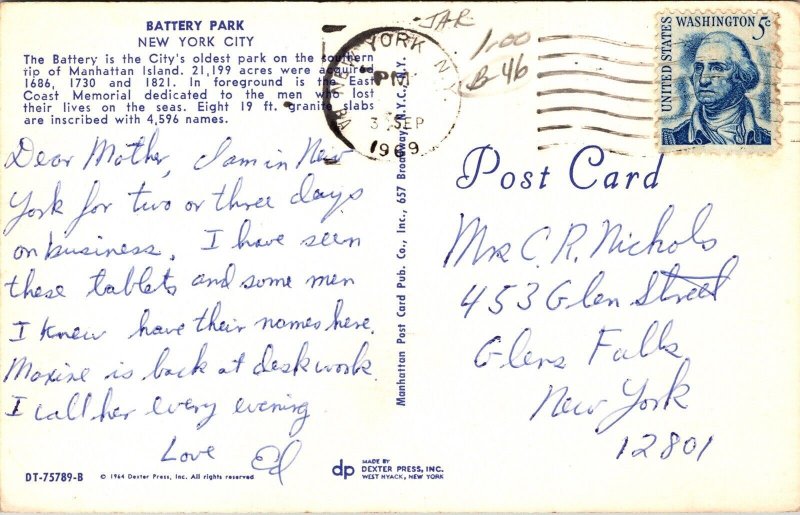 BATTERY PARK
NEW YORK CITY
The Battery is the City's oldest park on the southern
tip of Manhattan Island. 21,199 acres were acquired
1686, 1730 and 1821. In foreground is the East
Coast Memorial dedicated to the men who lost
their lives on the seas. Eight 19 ft. granite slabs
are inscribed with 4,596 names.
Dear Mother, I am in New
York for two or three days
on business. I have seen
these tablets and some men
I knew have their names here.
Maxine is back at desk work.
I call her every evening
Love Ed
DT-75789-B © 1964 Dexter Press, Inc. All rights reserved
dp MADE BY
DEXTER PRESS, INC.
WEST NYACK, NEW YORK
Manhattan Post Card Pub. Co., Inc., 657 Broadway, N.Y.C., N.Y.
YORK N.Y.
PM
3 SEP
1969
JAR
1.00
B-46
UNITED STATES
WASHINGTON 5c
Post Card
Mrs C. R. Nichols
453 Glen Street
Glens Falls
New York
12801